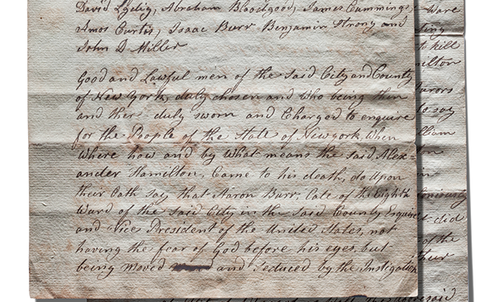 David Lydig, Abraham Bloodgood, James Cummings,
Amos Curtis, Isaac Burr Benjamin Strong and
John D. Miller
Good and Lawful men of the Said City and County
of New York, duly chosen and Who being then
and there duly sworn and Charged to enquire
for the People of the State of Newyork, When
Where how and by what means the Said Alex-
ander Hamilton, Came to his death, do Upon
their Oath Say that Aaron Burr, late of the Eighth
Ward of the Said City in the Said County Esquire
and Vice President of the United States, not
having the fear of God before his eyes but
being moved and Seduced by the Instigation
kill
to say
did
of the
their
said